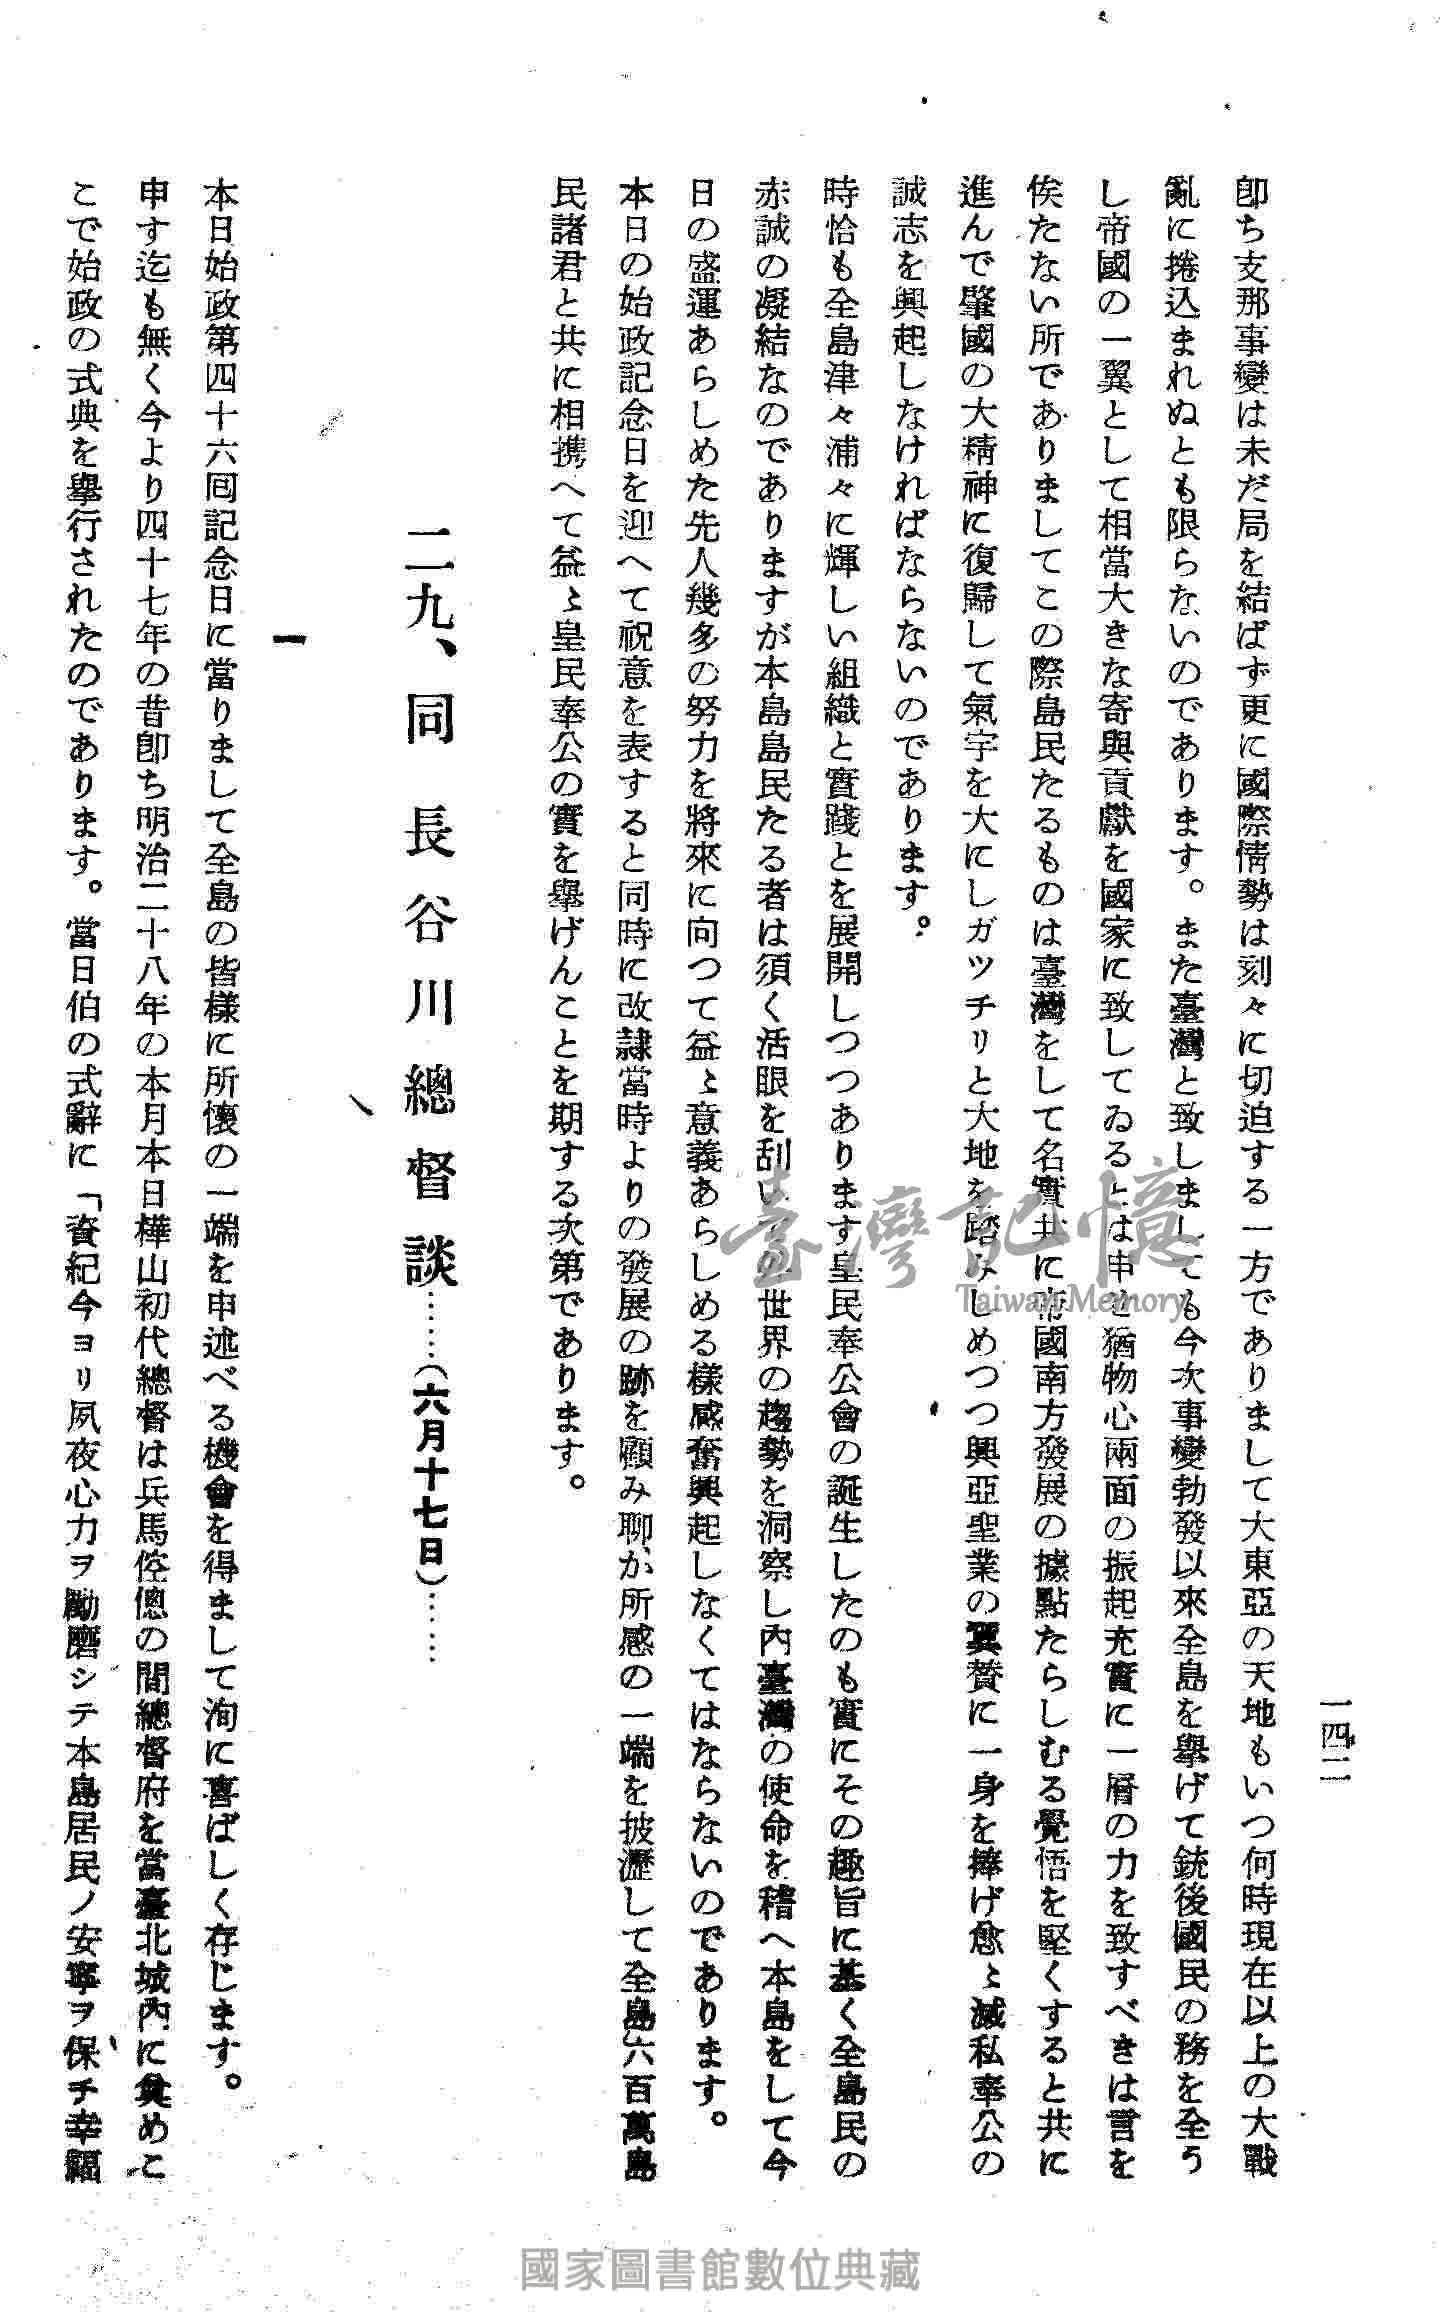 一四二
卽ち支那事變は未だ局を結ばず更に國際情勢は刻々に切迫する一方でありまして大東亞の天地もいつ何時現在以上の大戰
亂に捲込まれぬとも限らないのであります。また臺灣と致しましても今次事變勃發以來全島を擧げて銃後國民の務を全う
し帝國の一翼として相當大きな寄與貢獻を國家に致してゐるとは申せ猶物心兩面の振起充實に一層の力を致すべきは言を
俟たない所でありましてこの際島民たるものは臺灣をして名實共に帝國南方發展の據點たらしむる覺悟を堅くすると共に
進んで肇國の大精神に復歸して氣宇を大にしガツチリと大地を踏みしめつつ興亞聖業の翼贊に一身を捧げ愈〻滅私奉公の
誠志を興起しなければならないのであります。
時恰も全島津々浦々に輝しい組織と實踐とを展開しつつあります皇民奉公會の誕生したのも實にその趣旨に基く全島民の
赤誠の凝結なのでありますが本島島民たる者は須く活眼を刮いての世界の趨勢を洞察し內臺灣の使命を稽へ本島をして今
日の盛運あらしめた先人幾多の努力を將來に向つて益〻意義あらしめる樣感奮興起しなくてはならないのであります。
本日の始政記念日を迎へて祝意を表すると同時に改隷當時よりの發展の跡を顧み聊か所感の一端を披瀝して全島六百萬島
民諸君と共に相携へて益〻皇民奉公の實を擧げんことを期する次第であります。
二九、同 長谷川總督談……(六月十七日)……
一
本日始政第四十六回記念日に當りまして全島の皆樣に所懷の一端を申述べる機會を得まして洵に喜ばしく存じます。
申す迄も無く今より四十七年の昔卽ち明治二十八年の本月本日樺山初代總督は兵馬倥傯の間總督府を當臺北城內に奠めこ
こで始政の式典を擧行されたのであります。當日伯の式辭に「資紀今ヨリ夙夜心力ヲ勵磨シテ本島居民ノ安寧ヲ保チ幸福
臺灣記憶
Taiwan Memory
國家圖書館數位典藏